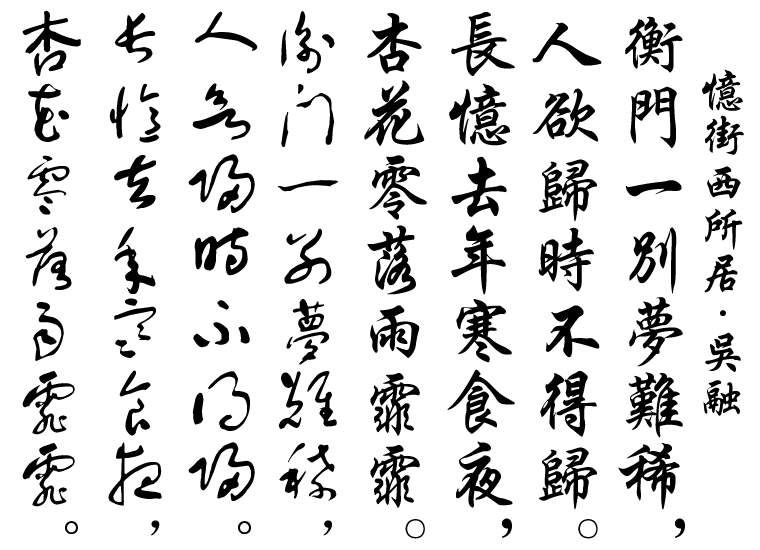 憶街西所居·吳融
衡門一別夢難稀，
人欲歸時不得歸。
長憶去年寒食夜，
杏花零落雨霏霏。
衡門一別夢難稀，
人欲歸時不得歸。
長憶去年寒食夜，
杏花零落雨霏霏。